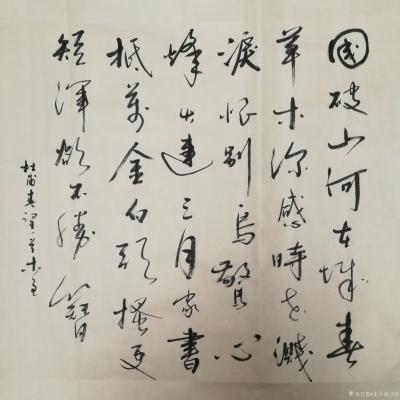 國破山河在城春
草木深感時花濺
淚恨別鳥驚心
烽火連三月家書
抵萬金白頭搔更
短渾欲不勝簪
杜甫春望一首